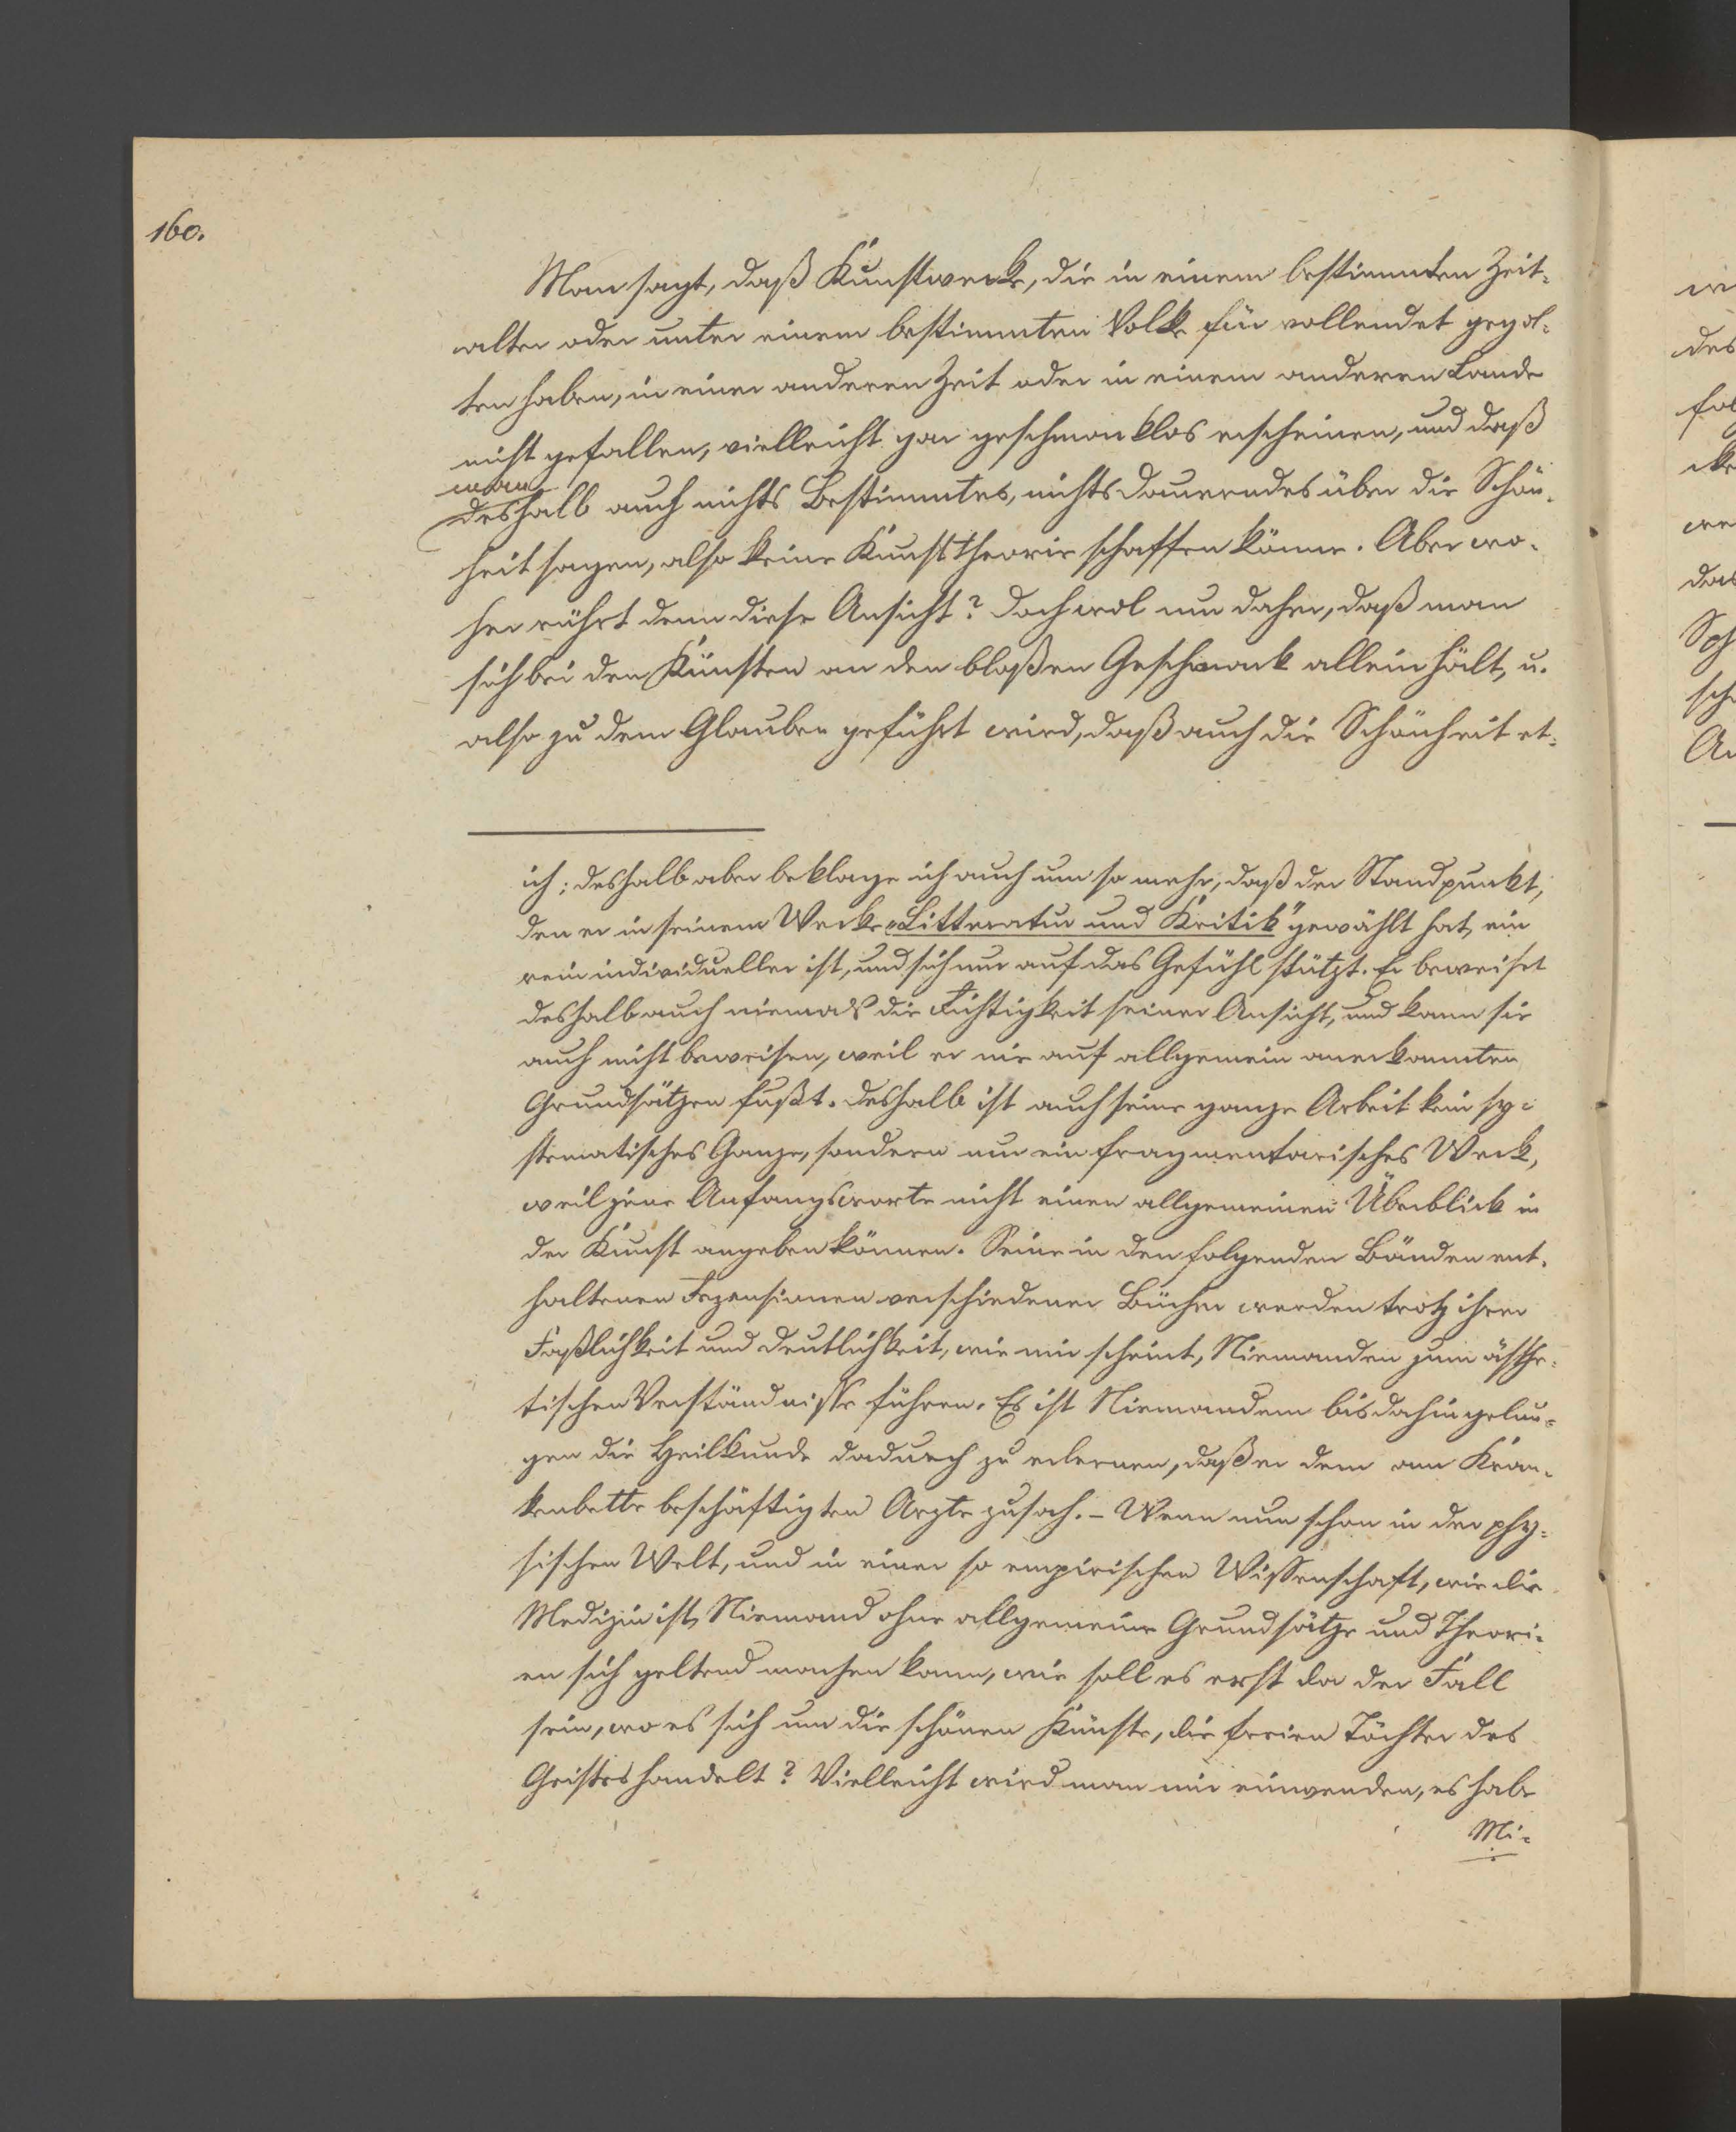 160.
Man sagt, daß Kunstwerke, die in einem bestimmten Zeit-
alter oder unter einem bestimmten Volke für vollendet gegol-
ten haben, in einer anderen Zeit oder in einem anderen Lande
nicht gefallen, vielleicht gar geschmacklos erscheinen, und daß
man
deshalb auch nichts Bestimmtes, nichts Dauerndes über die Schön-
heit sagen, also keine Kunsttheorie schaffen könne. Aber wo-
her rührt denn diese Ansicht? Doch wol nur daher, daß man
sich bei den Künsten an den bloßen Geschmack allein hält, u.
also zu dem Glauben geführt wird, daß auch die Schönheit et-
ich; deshalb aber beklage ich auch um so mehr, daß der Standpunkt,
den er in seinem Werke „Litteratur und Kritik" gewählt hat, ein
rein individueller ist, und sich nur auf das Gefühl stützt. Er beweiset
deshalb auch niemals die Richtigkeit seiner Ansicht, und kann sie
auch nicht beweisen, weil er nie auf allgemein anerkannten
Grundsätzen fußt. Deshalb ist auch seine ganze Arbeit kein sy-
stematisches Ganze, sondern nur ein fragmentarisches Werk,
weil jene Anfangsworte nicht einen allgemeinen Überblick in
der Kunst angeben können. Seine in den folgenden Bänden ent-
haltenen Rezensionen verschiedener Bücher werden trotz ihrer
Faßlichkeit und Deutlichkeit, wie mir scheint, Niemanden zum ästhe-
tischen Verständnisse führen. Es ist Niemandem bis dahin gelun-
gen die Heilkunde dadurch zu erlernen, daß er dem am Kran-
kenbette beschäftigten Arzte zusah. – Wenn nun schon in der phy-
sischen Welt, und in einer so empirischen Wissenschaft, wie die
Medizin ist, Niemand ohne allgemeine Grundsätze und Theori-
en sich geltend machen kann, wie soll es erst da der Fall
sein, wo es sich um die schönen Künste, die freien Töchter des
Geistes handelt? Vielleicht wird man mir einwenden, es habe
Mi-